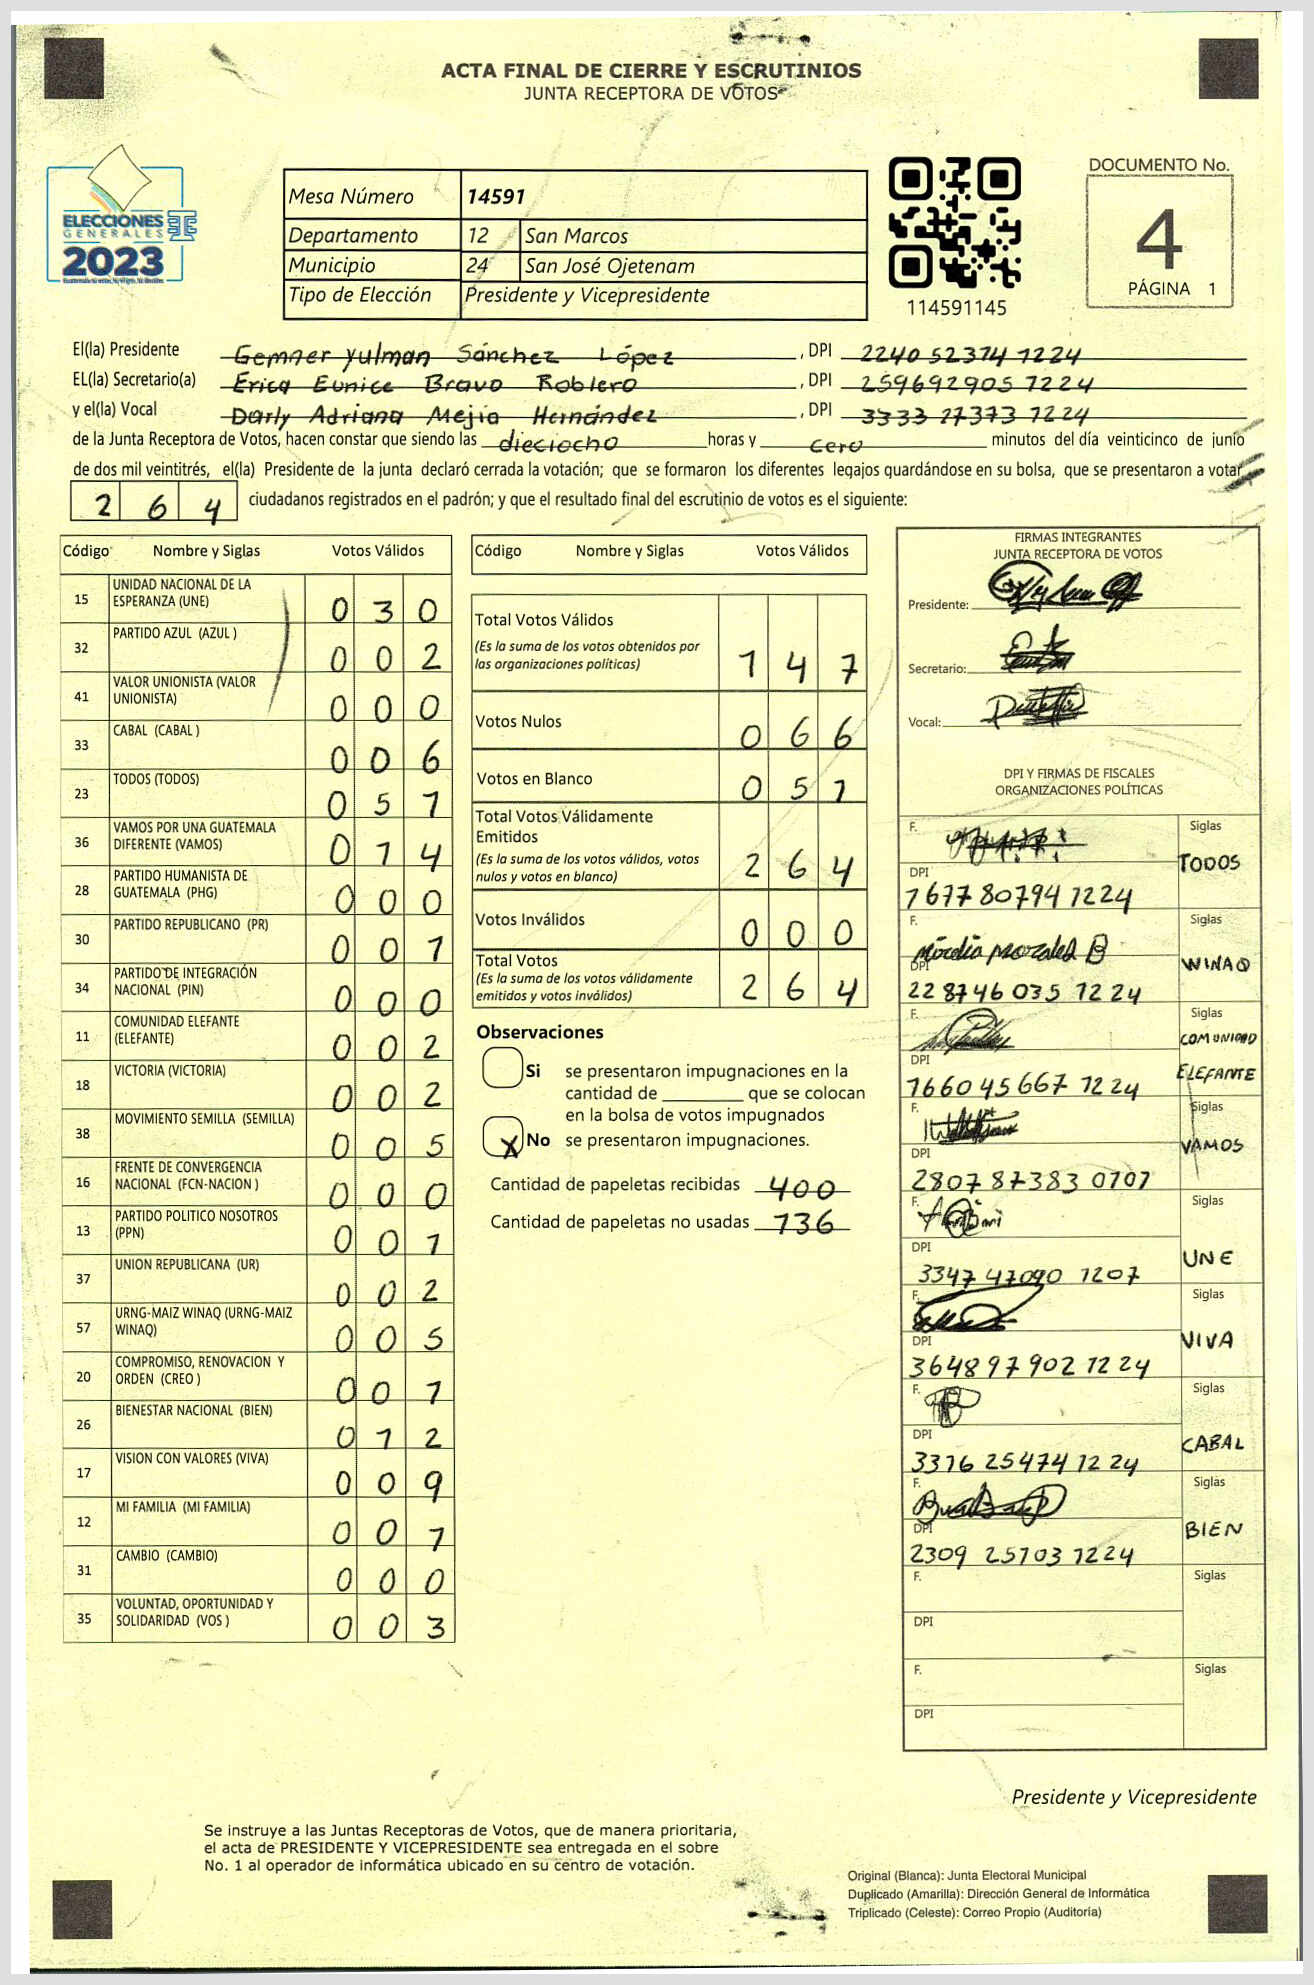 ACTA FINAL DE CIERRE Y ESCRUTINIOS
JUNTA RECEPTORA DE VOTOS
ELECCIONES
GENERALES
2023
Mesa Número 14591
Departamento 12 San Marcos
Municipio 24 San José Ojetenam
Tipo de Elección Presidente y Vicepresidente
114591145
DOCUMENTO No.
4
PÁGINA 1
El(la) Presidente Gemner Yulman Sánchez López, DPI 2240 52374 1224
EL(la) Secretario(a) Erica Eunice Bravo Roblero, DPI 259692905 1224
y el(la) Vocal Darly Adriana Mejía Hernández, DPI 3333 27373 1224
de la Junta Receptora de Votos, hacen constar que siendo las dieciocho horas y cero minutos del día veinticinco de junio
de dos mil veintitrés, el(la) Presidente de la junta declaró cerrada la votación; que se formaron los diferentes legajos guardándose en su bolsa, que se presentaron a votar
264 ciudadanos registrados en el padrón; y que el resultado final del escrutinio de votos es el siguiente:
Código Nombre y Siglas Votos Válidos
15 UNIDAD NACIONAL DE LA ESPERANZA (UNE) 030
32 PARTIDO AZUL (AZUL ) 002
41 VALOR UNIONISTA (VALOR UNIONISTA) 000
33 CABAL (CABAL ) 006
23 TODOS (TODOS) 051
36 VAMOS POR UNA GUATEMALA DIFERENTE (VAMOS) 014
28 PARTIDO HUMANISTA DE GUATEMALA (PHG) 000
30 PARTIDO REPUBLICANO (PR) 001
34 PARTIDO DE INTEGRACIÓN NACIONAL (PIN) 000
11 COMUNIDAD ELEFANTE (ELEFANTE) 002
18 VICTORIA (VICTORIA) 002
38 MOVIMIENTO SEMILLA (SEMILLA) 005
16 FRENTE DE CONVERGENCIA NACIONAL (FCN-NACION ) 000
13 PARTIDO POLITICO NOSOTROS (PPN) 001
37 UNION REPUBLICANA (UR) 002
57 URNG-MAIZ WINAQ (URNG-MAIZ WINAQ) 005
20 COMPROMISO, RENOVACION Y ORDEN (CREO ) 001
26 BIENESTAR NACIONAL (BIEN) 012
17 VISION CON VALORES (VIVA) 009
12 MI FAMILIA (MI FAMILIA) 001
31 CAMBIO (CAMBIO) 000
35 VOLUNTAD, OPORTUNIDAD Y SOLIDARIDAD (VOS ) 003
Código Nombre y Siglas Votos Válidos
Total Votos Válidos 147
(Es la suma de los votos obtenidos por
las organizaciones políticas)
Votos Nulos 066
Votos en Blanco 051
Total Votos Válidamente
Emitidos 264
(Es la suma de los votos válidos, votos
nulos y votos en blanco)
Votos Inválidos 000
Total Votos 264
(Es la suma de los votos válidamente
emitidos y votos inválidos)
Observaciones
Si se presentaron impugnaciones en la
cantidad de ________ que se colocan
en la bolsa de votos impugnados
X No se presentaron impugnaciones.
Cantidad de papeletas recibidas 400
Cantidad de papeletas no usadas 136
FIRMAS INTEGRANTES
JUNTA RECEPTORA DE VOTOS
Presidente:
Secretario:
Vocal:
DPI Y FIRMAS DE FISCALES
ORGANIZACIONES POLÍTICAS
F. Siglas
TODOS
DPI
1677 80794 1224
F. Siglas
Morales B
WINAQ
DPI
228746035 1224
F. Siglas
COMUNIDAD
ELEFANTE
DPI
166045667 1224
F. Siglas
VAMOS
DPI
2807 87383 0707
F. Siglas
UNE
DPI
3347 47090 1207
F. Siglas
VIVA
DPI
364897902 1224
F. Siglas
CABAL
DPI
3316 25474 1224
F. Siglas
BIEN
DPI
2309 25703 1224
F. Siglas
DPI
F. Siglas
DPI
Presidente y Vicepresidente
Se instruye a las Juntas Receptoras de Votos, que de manera prioritaria,
el acta de PRESIDENTE Y VICEPRESIDENTE sea entregada en el sobre
No. 1 al operador de informática ubicado en su centro de votación.
Original (Blanca): Junta Electoral Municipal
Duplicado (Amarilla): Dirección General de Informática
Triplicado (Celeste): Correo Propio (Auditoría)